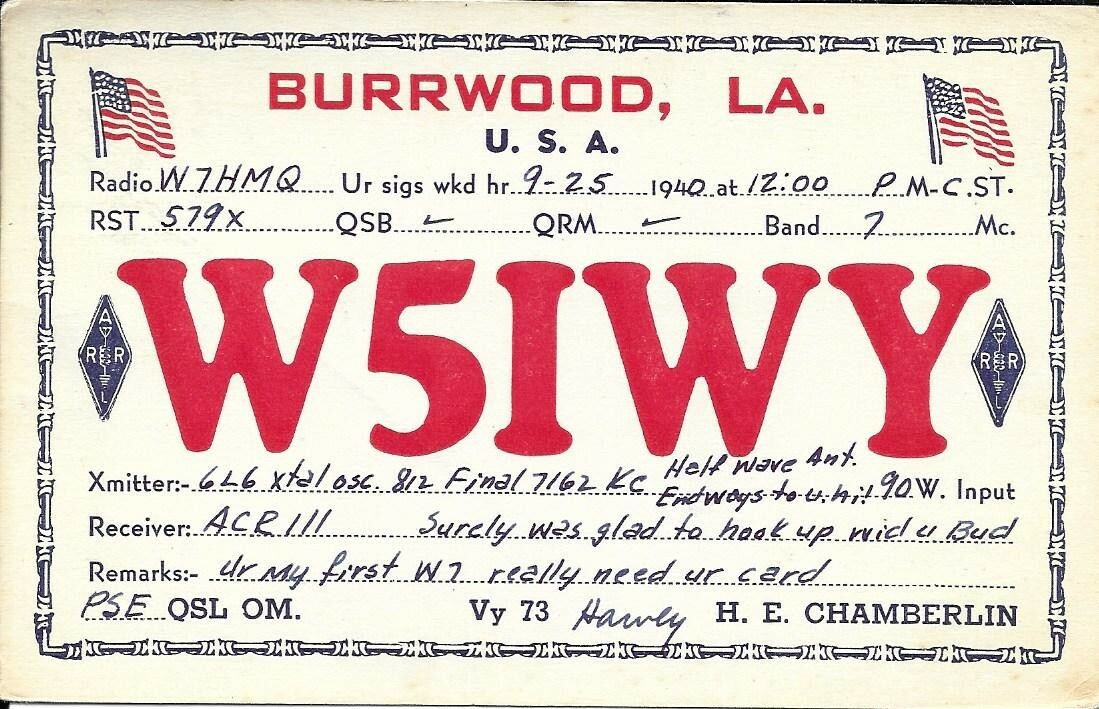 BURRWOOD, LA.
U. S. A.
Radio W7HMQ Ur sigs wkd hr 9-25 1940 at 12:00 P M-C.ST.
RST 579x QSB QRM Band 7 Mc.
A R R L
W5IWY
A R R L
Half Wave Ant.
Xmitter:- 6L6 xtal osc. 812 Final 7162 KC Endways to u. hi! 90 W. Input
Receiver: ACR 111 Surely was glad to hook up wid u Bud
Remarks:- Ur my first W7 really need ur card
PSE QSL OM. Vy 73 Harvey H. E. CHAMBERLIN